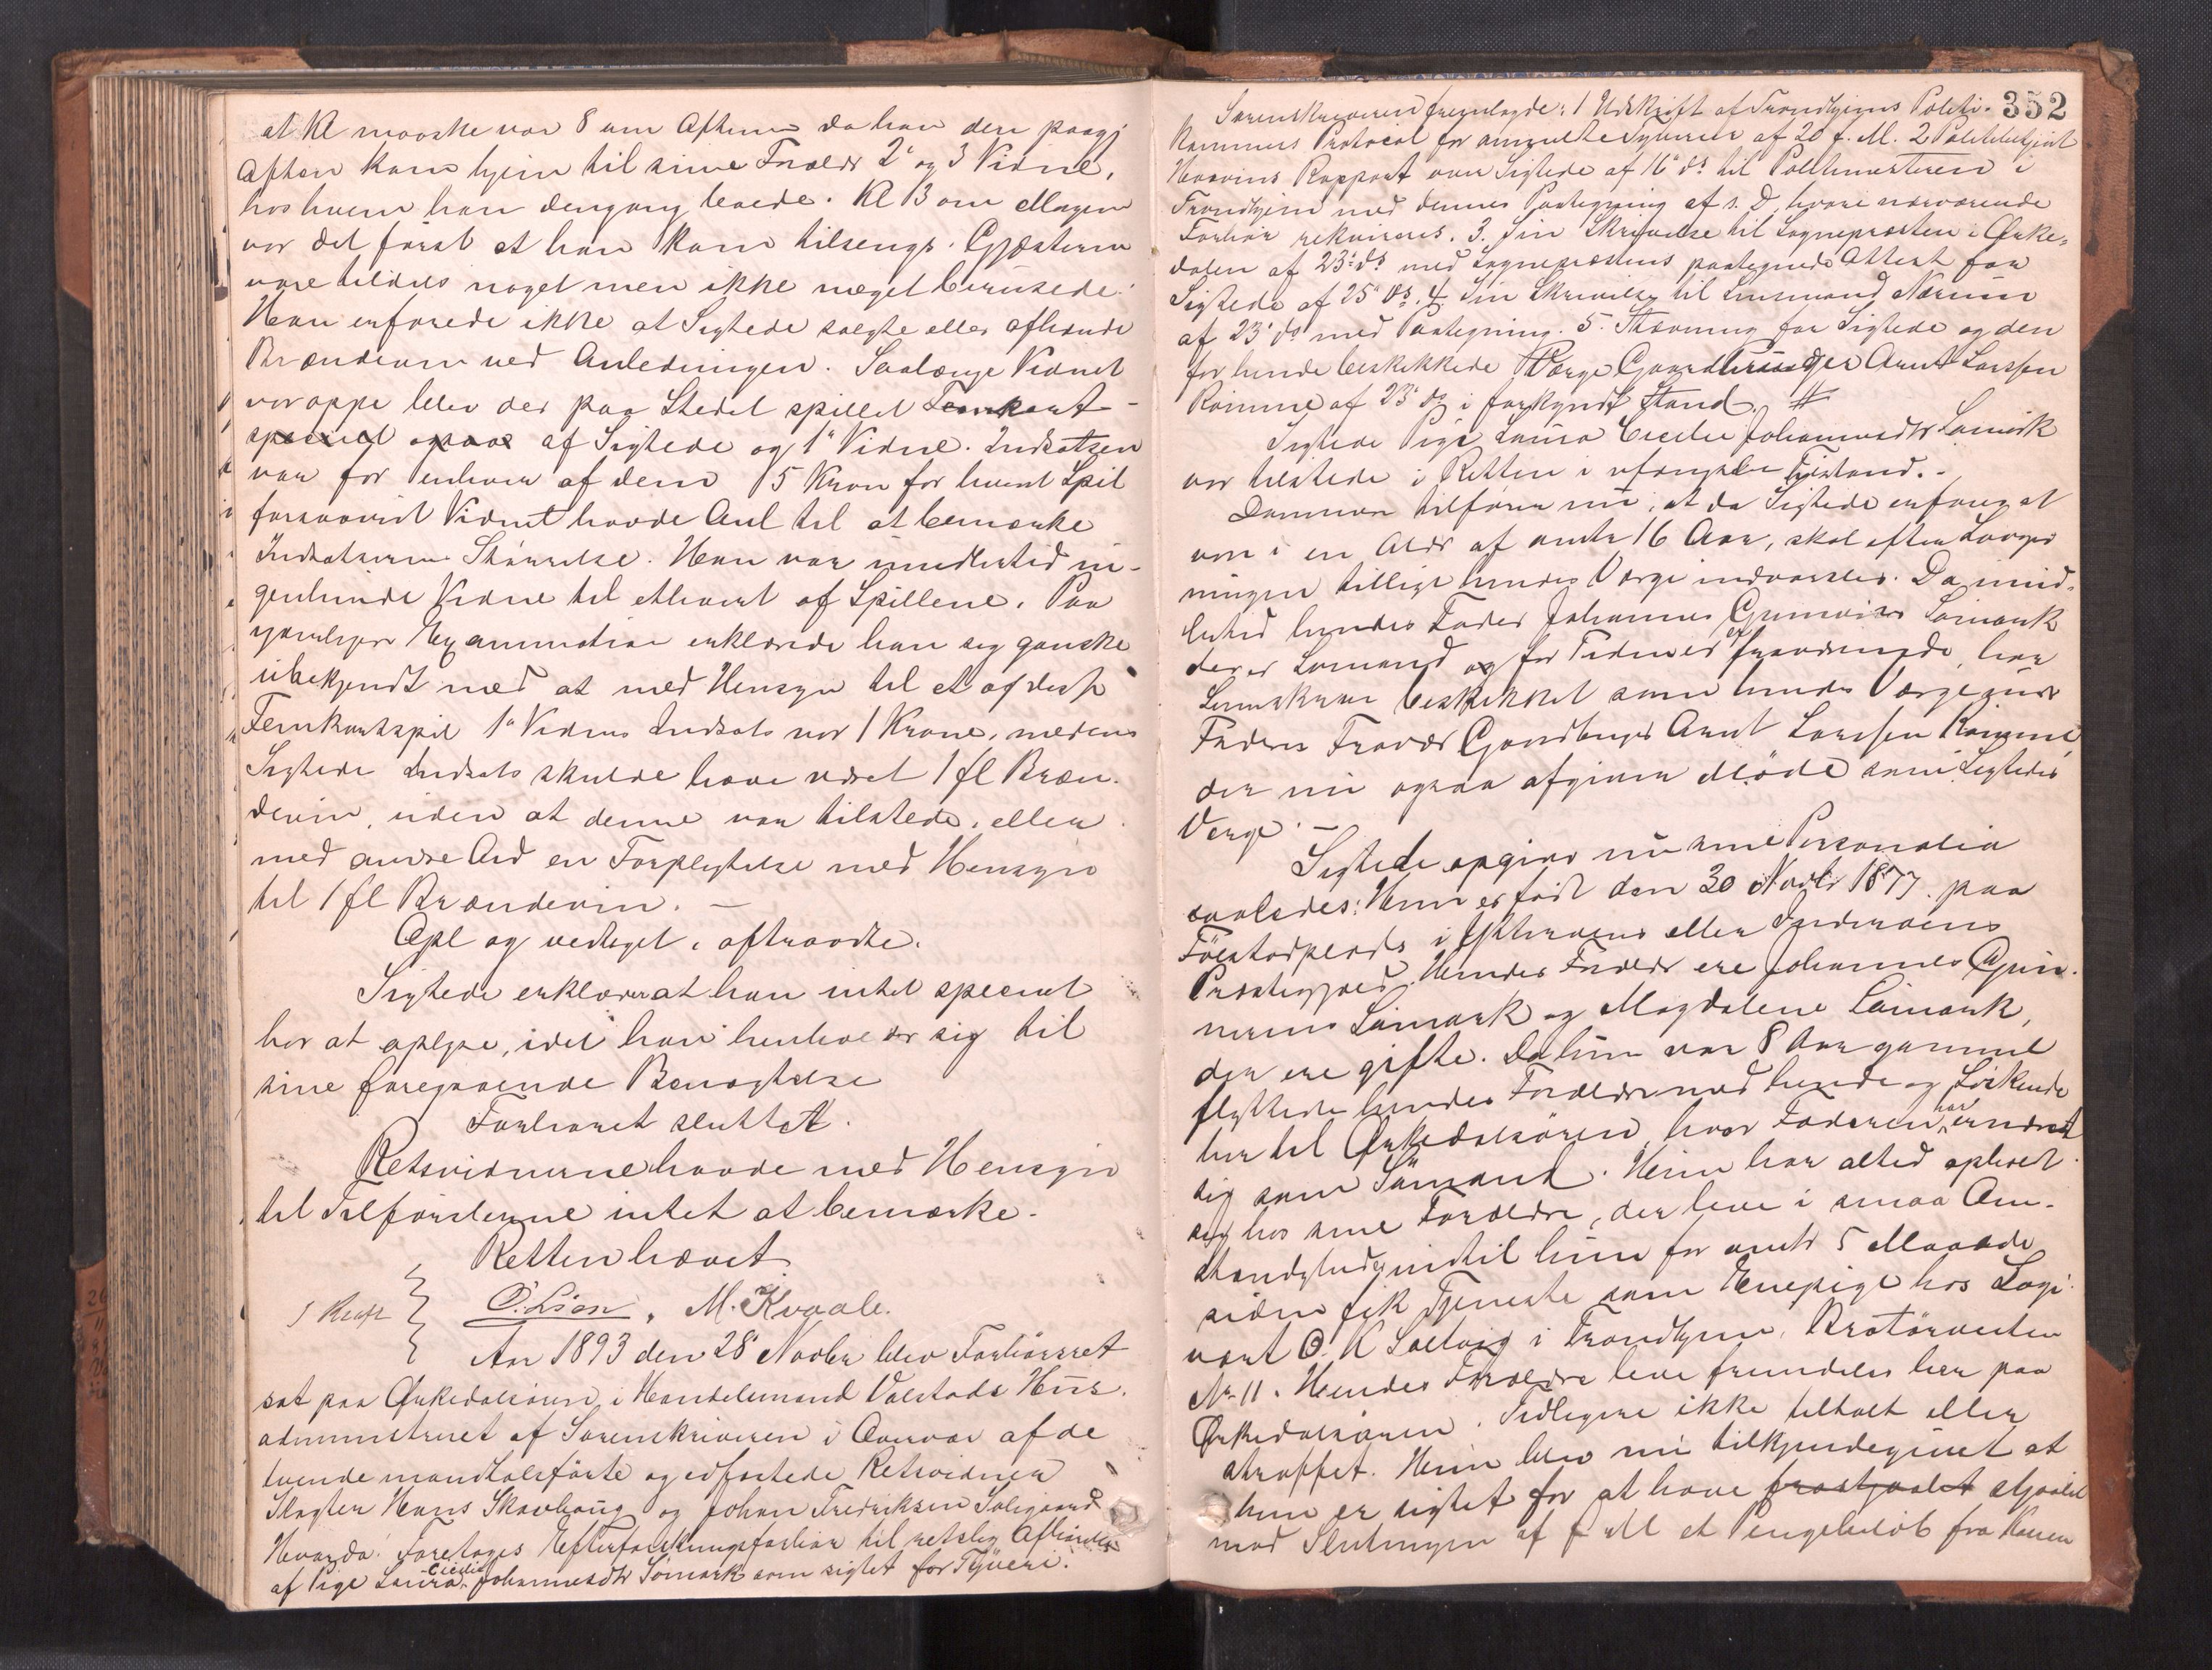 at Kl maaske var 8 om Aftenen da han den paagj
Aften kom hjem til sine Forældr 2' og 3 Vidne,
hos hvem han dengang boede. Kl 3 om Morgen
var det først at han kom tilsengs. Gjæsterne
vare tildels noget men ikke meget berusede.
Han erfarede ikke at Sigtede solgte eller afhænde
Brændevin ved Anledningen. Saalænge Vidnet
var oppe blev der paa Stedet spillet Femkort
specielt ogsaa af Sigtede og 1' Vidne. Indsatsen
var for enhver af dem 5 Kron for hvert Spil
forsaavidt Vidnet havde Anl til at bemærke
Indsatsernes Størrelse. Han var imidlertid in-
genlunde Vidne til ethvert af Spillene. Paa
yderligere Examination erklærede han sig ganske
ubekjendt med at med Hensyn til et af disse
Femkortspil 1' Vidnes Indsats var 1 Krone, medens
Sigtedes Indsats skulde have været 1 fl Bræn-
devin, uden at denne var tilstede, eller
med andre Ord en Forpligtelse med Hensyn
til 1 fl Brændevin. —
Opl og vedtaget, aftraadte.
Sigtede erklærer at han intet specielt
har at oplyse, idet han henholder sig til
sine foregaaende Benægtelse
Forhøret sluttet.
Retsvidnerne havde med Hensyn
til Tilførslerne intet at bemærke.
Retten hævet
O. Lian, M. Kvaale.
Aar 1893 den 28' Novbr blev Forhørsret
sat paa Ørkedalsøren i Handelsmand Valstads Hus,
administreret af Sorenskriveren i Overvær af de
tvende mandtalsførte og edfæstede Retsvidner
Slagter Hans Skavhaug og Johan Fredriksen Solligaard
Hvorda: Foretages Efterforskningsforhør til retslig Afhørelse
af Pige Laura Cicilie Johannesdtr Sømark som sigtet for Tyveri.
352
Sorenskriveren fremlagde: 1 Udskrift af Trondhjems Politi-
kammers Protocol for anmeldte Tyverier af 20 f. M. 2 Politibetjent
Haavins Rapport over Sigtede af 16' ds til Politimesteren i
Trondhjem med dennes Paategning af s. D, hvori nærværende
Forhør rekvireres. 3. Sin Skrivelse til Sognepræsten i Ørke-
dalen af 23' ds med Sognepræstens paategnede Attest for
Sigtede af 25' ds. 4 Sin Skrivelse til Lensmand Nærum
af 23' ds med Paategning. 5. Stævning for Sigtede og den
for hende beskikkede Værge Gaardbruger Arnt Larssen
Romme af 23' ds i forkyndt Stand. #
Sigtede Pige Laura Cicilie Johannesdtr Sømark
var tilstede i Retten i ufængslet Tilstand. -
Dommeren tilfører nu, at da Sigtede
var i en Alder af under 16 Aar, skal efter Lovgiv
ningen tillige hendes Værge indvarsles. Da imid-
lertid hendes Fader Johannes Gunnerius Sømark
der er Sømand og for Tiden er fraværende, har
Sorenskriver beskikket som hendes Værge under
Faderens Fravær Gaardbruger Arnt Larssen Romme,
der nu ogsaa afgiver Møde som Sigtedes
Værge. —
Sigtede opgiver nu sine Personalia
saaledes: Hun er født den 30 Novbr 1877 paa
i Ytterøens eller Inderøens
Præstegjæld. Hendes Forældr ere Johannes Gun-
nerius Sømark og Magdalene Sømark,
der ere gifte. Da hun var 8 Aar gammel
flyttede hendes Forældre med hende og Søskende
her til Ørkedalsøren, hvor Faderen har ernæret
sig som Sømand. Hun har altid opholdt
sig hos sine Forældre, der leve i smaa Om-
stændigheder, indtil hun for omtr 5 Maaneder
siden fik Tjeneste som Enepige hos Logi-
vært O. K Solberg i Trondhjem, Bratørveiten
Nr 11. Hendes Forældre leve fremdeles her paa
Ørkedalsøren. Tidligere ikke tiltalt eller
straffet. Hun blev nu tilkjendegivet at
hun er sigtet for at have frastjaalet stjaalet
mod Slutningen af f M et Pengebeløb fra